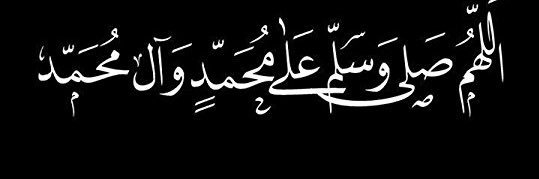 اَللّٰهُمَّ صَلِّ وَسَلِّمْ عَلَىٰ مُحَمَّدٍ وَآلِ مُحَمَّد